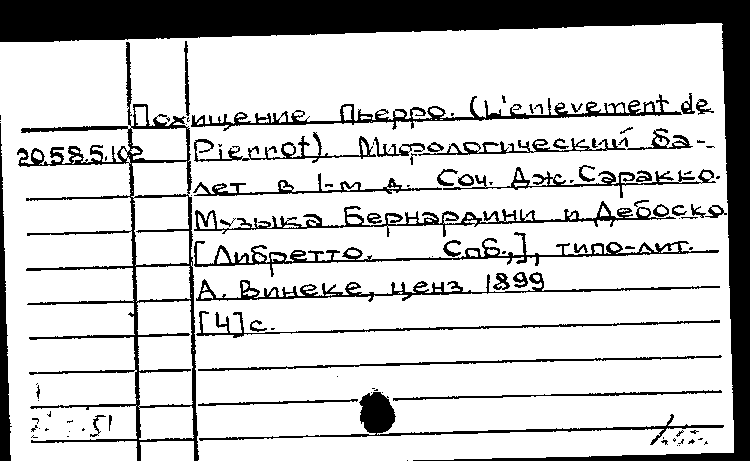 Похищение Пьерро. (L'enlevement de
20.58.5.102 Pierrot). Мифологический ба-
лет в 1-м д. Соч. Дж. Саракко.
Музыка Бернардини и Дебоско
[Либретто. Спб.,], типо-лит.
А. Винеке, ценз. 1899
[4]с.